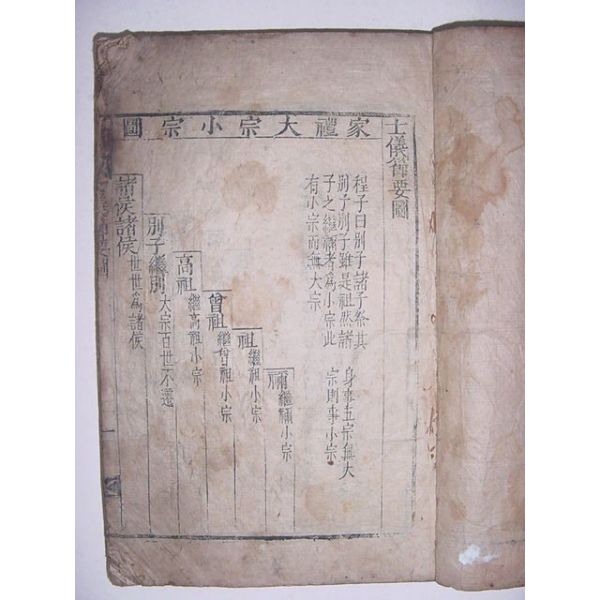 士儀節要圖
家禮大宗小宗圖
程子曰別子諸子祭其
別子別子雖是祖然諸
子之繼禰者爲小宗此
有小宗而無大宗
身事五宗無大
宗則事小宗
禰繼禰小宗
祖繼祖小宗
曾祖繼曾祖小宗
高祖繼高祖小宗
別子繼別大宗百世不遷
諸侯諸侯世世爲諸侯